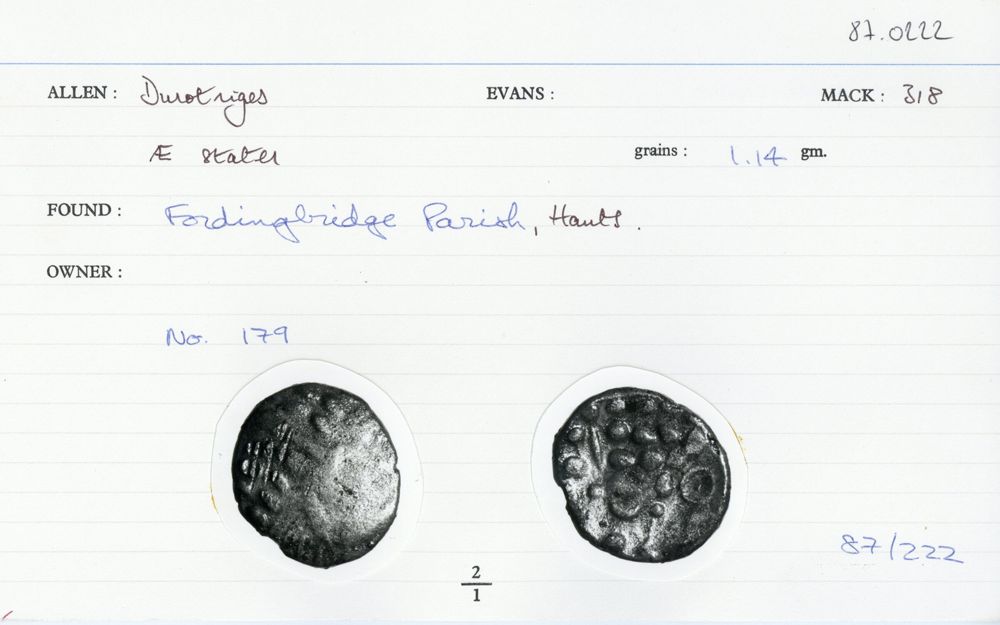 87.0222
ALLEN : Durotriges EVANS : MACK : 318
Æ stater grains : 1.14 gm.
FOUND : Fordingbridge Parish, Hants.
OWNER :
No. 179
87/222
2
1